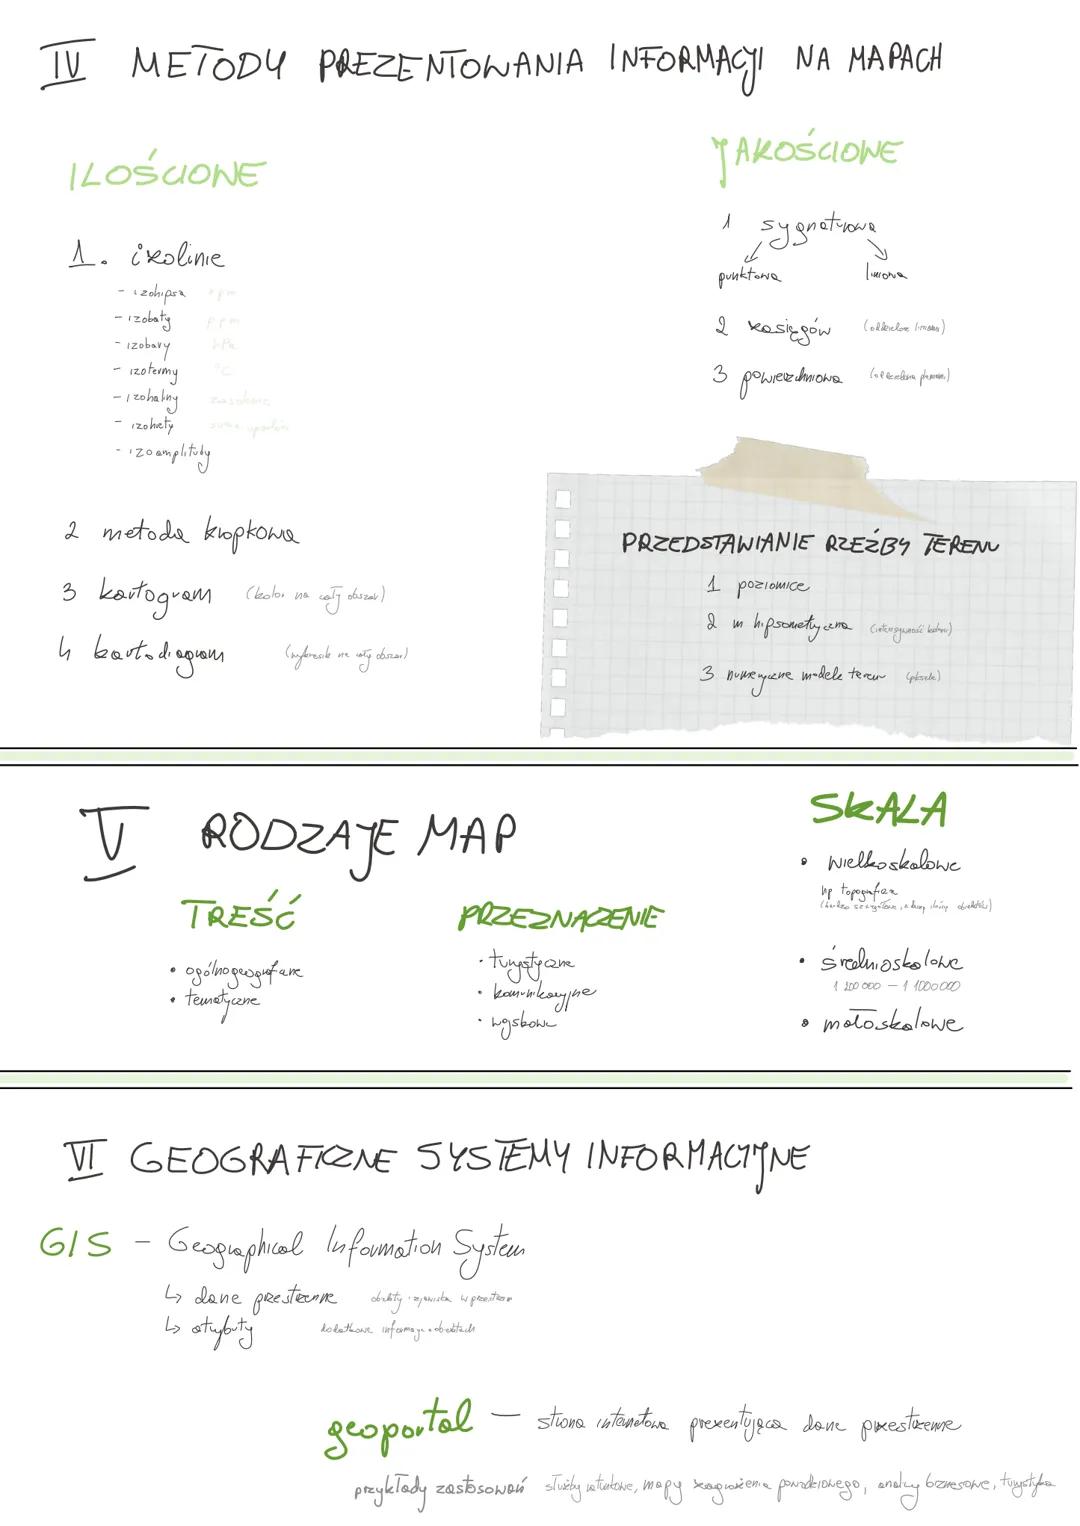 IV METODY PREZENTOWANIA INFORMACJI NA MAPACH
ILOŚCIOWE
1. izolinie
- izohipsa npm
- izobaty ppm
- izobary hPa
- izotermy °C
- izohaliny zasolenie
- izohiety suma opadów
- izoamplitudy
2 metoda kropkowa
3 kartogram (kolor na cały obszar)
4 kartodiagram (wykresik na cały obszar)
JAKOŚCIOWE
1 sygnaturowa
punktowa liniowa
2 zasięgów (oddzielone liniami)
3 powierzchniowa
PRZEDSTAWIANIE RZEŹBY TERENU
1 poziomice
2 m hipsometryczna (intensywność koloru)
3 numeryczne modele terenu (piksele)
V RODZAJE MAP
TREŚĆ
• ogólnogeograficzne
• tematyczne
PRZEZNACZENIE
• turystyczne
• komunikacyjne
SKALA
• wielkoskalowe
np topograficzne
• średnioskalowe
1 200 000 – 1 1000 000
• małoskalowe
VI GEOGRAFICZNE SYSTEMY INFORMACYJNE
GIS - Geographical Information System
↳ dane przestrzenne obiekty i zjawiska w przestrzeni
↳ atrybuty dodatkowe informacje o obiektach
geoportal — strona internetowa prezentująca dane przestrzenne
przykłady zastosowań służby ratunkowe, mapy zagrożenia powodziowego, analizy biznesowe, turystyka